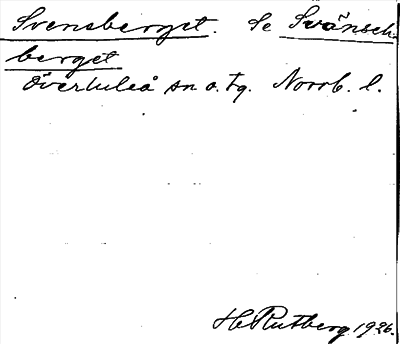 Svensberget. Se Svänsch-
berget
Överluleå sn o. tg. Norrb. l.
H Rutberg 1926.